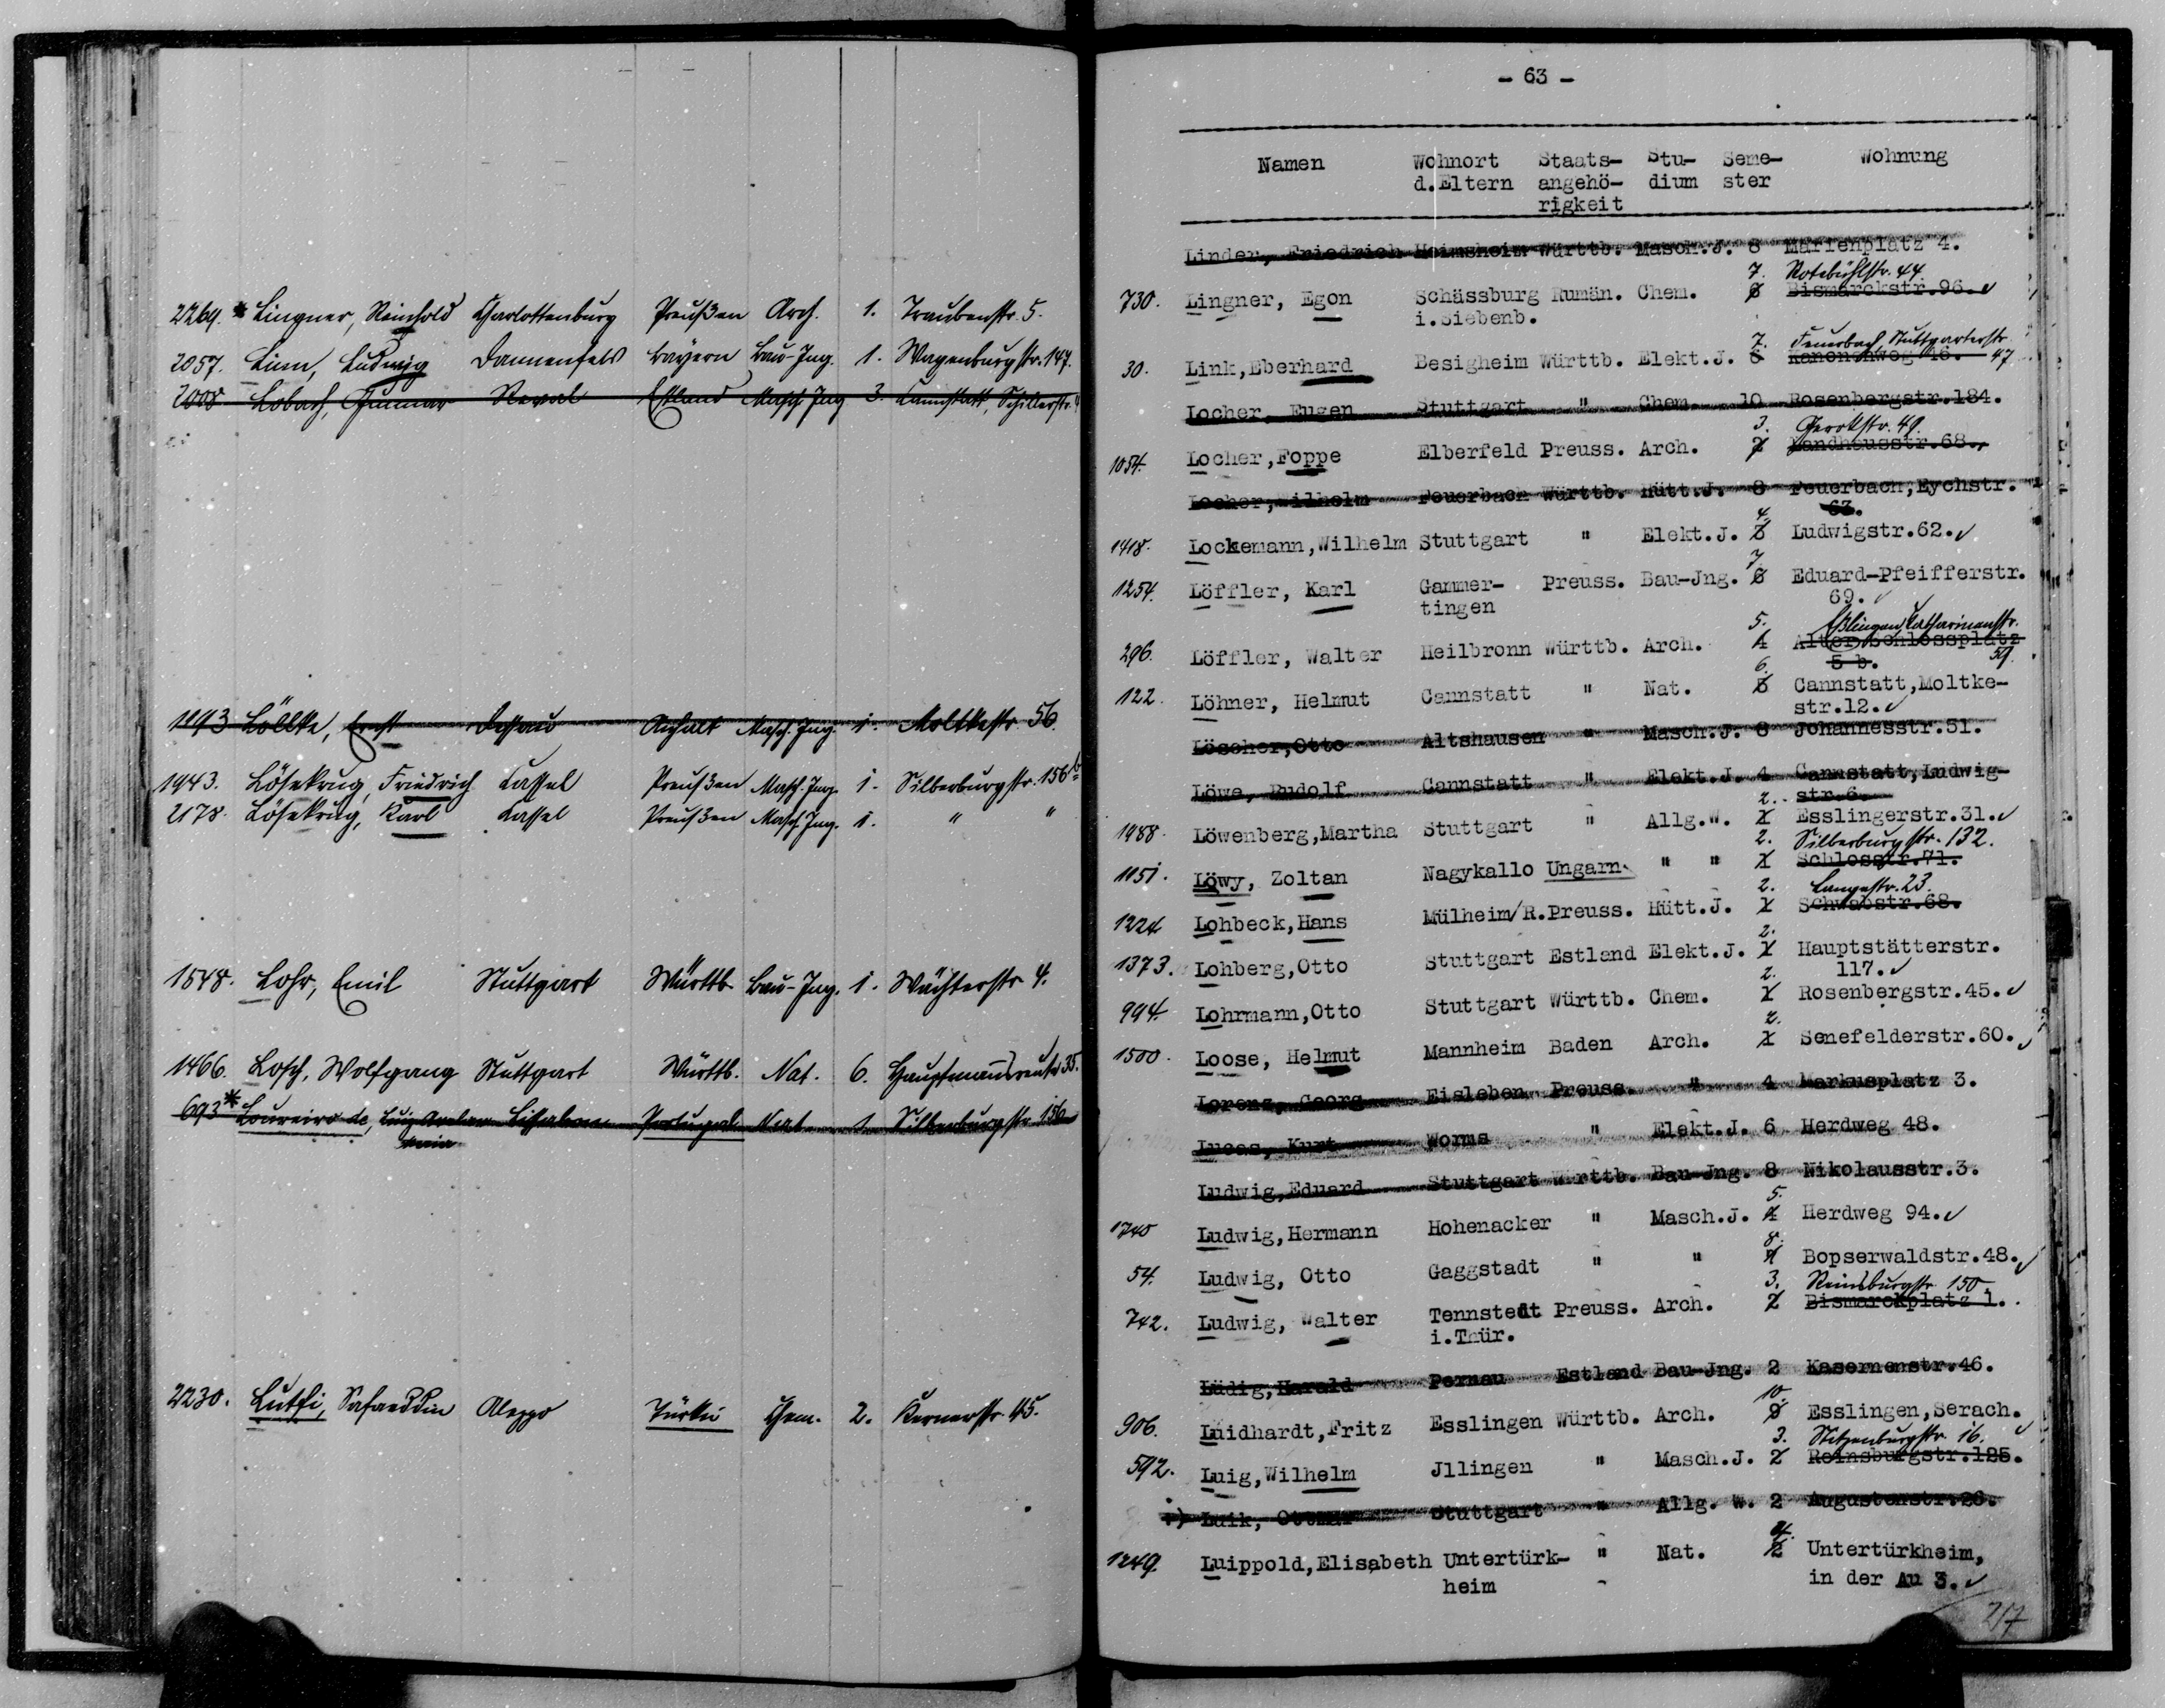 2269. * Lingner, Reinhold Charlottenburg Preußen Arch. 1. Traubenstr. 5.
2057. Linn, Ludwig Dannenfels Bayern Bau-Ing. 1. Wagenburgstr. 147.
2008. Lobach, Gunnar Reval Estland Masch. Ing 3. Cannstatt, Schillerstr.
1893 Löllke, Ernst Dessau Anhalt Masch. Ing. 1. Moltkestr. 56.
1943. Lösekrug, Friedrich Cassel Preußen Masch. Ing. 1. Silberburgstr. 156b
2178. Lösekrug, Karl Kassel Preußen Masch. Ing. 1. " "
1548. Lohr, Emil Stuttgart Württb. Bau-Ing. 1. Wächterstr 4.
1466. Losch, Wolfgang Stuttgart Württb. Nat. 6. Hauptmannsreute 35.
693* Loureiro de, Luiz Lissabon Portugal 1 Silberburgstr. 156
2230. Lutfi, Safaeddin Aleppo Türkei Chem. 2. Kernerstr. 45.
- 63 -
Namen Wohnort Staats- Stu- Seme- Wohnung
d.Eltern angehö- dium ster
rigkeit
Linder, Friedrich Heimsheim Württb. Masch.J. 8 Marienplatz 4.
7. Rotebühlstr. 44
730. Lingner, Egon Schässburg Rumän. Chem. 6 Bismarckstr.96.
i.Siebenb.
7. Feuerbach, Stuttgarterstr
30. Link,Eberhard Besigheim Württb. Elekt.J. 6 Kanonenweg 47
Locher, Eugen Stuttgart " Chem. 10 Rosenbergstr.184.
3. Gerokstr. 49.
1054. Locher,Foppe Elberfeld Preuss. Arch. 2 Landhausstr.68.
Locher,Wilhelm Feuerbach Württb. Hütt.J. 8 Feuerbach,Eychstr.
63.
4.
1418. Lockemann,Wilhelm Stuttgart " Elekt.J. 3 Ludwigstr.62.
7
1254. Löffler, Karl Gammer- Preuss. Bau-Jng. 6 Eduard-Pfeifferstr.
tingen 69.
5. Esslingen, Katharinenstr.
296. Löffler, Walter Heilbronn Württb. Arch. 4 Alter Schlossplatz
5 b. 59
6.
122. Löhner, Helmut Cannstatt " Nat. 5 Cannstatt,Moltke-
str.12.
Löscher,Otto Altshausen " Masch.J. 8 Johannesstr.51.
Löwe, Rudolf Cannstatt " Elekt.J. 4 Cannstatt,Ludwig-
str.6.
2.
1988. Löwenberg,Martha Stuttgart " Allg.W. 1 Esslingerstr.31.
2. Silberburgstr. 132.
1051. Löwy, Zoltan Nagykallo Ungarn " " 1 Schlosstr.71.
2. Langestr. 23.
1224 Lohbeck,Hans Mülheim/R.Preuss. Hütt.J. 1 Schwabstr.68.
2.
1373. Lohberg,Otto Stuttgart Estland Elekt.J. 1 Hauptstätterstr.
117.
2.
994. Lohrmann,Otto Stuttgart Württb. Chem. 1 Rosenbergstr.45.
2.
1500. Loose, Helmut Mannheim Baden Arch. 1 Senefelderstr.60.
Lorenz, Georg Eisleben Preuss. " 4 Markusplatz 3.
Lucas, Kurt Worms " Elekt.J. 6 Herdweg 48.
Ludwig,Eduard Stuttgart Württb. Bau-Jng. 8 Nikolausstr.3.
5.
1740 Ludwig,Hermann Hohenacker " Masch.J. 4 Herdweg 94.
8.
54. Ludwig, Otto Gaggstadt " " 7 Bopserwaldstr.48.
3. Reinsburgstr. 150
742. Ludwig, Walter Tennstedt Preuss. Arch. 2 Bismarckplatz 1.
i.Thür.
Lüdig,Harald Pernau Estland Bau-Jng. 2 Kasernenstr.46.
10.
906. Lüidhardt,Fritz Esslingen Württb. Arch. 9 Esslingen,Serach.
3. Stitzenburgstr. 16.
592. Luig,Wilhelm Jllingen " Masch.J. 2 Reinsburgstr.125.
Luik, Ottmar Stuttgart " Allg. W. 2 Augustenstr.26.
1249. Luippold,Elisabeth Untertürk- " Nat. 2 Untertürkheim,
heim in der Au 3.
217